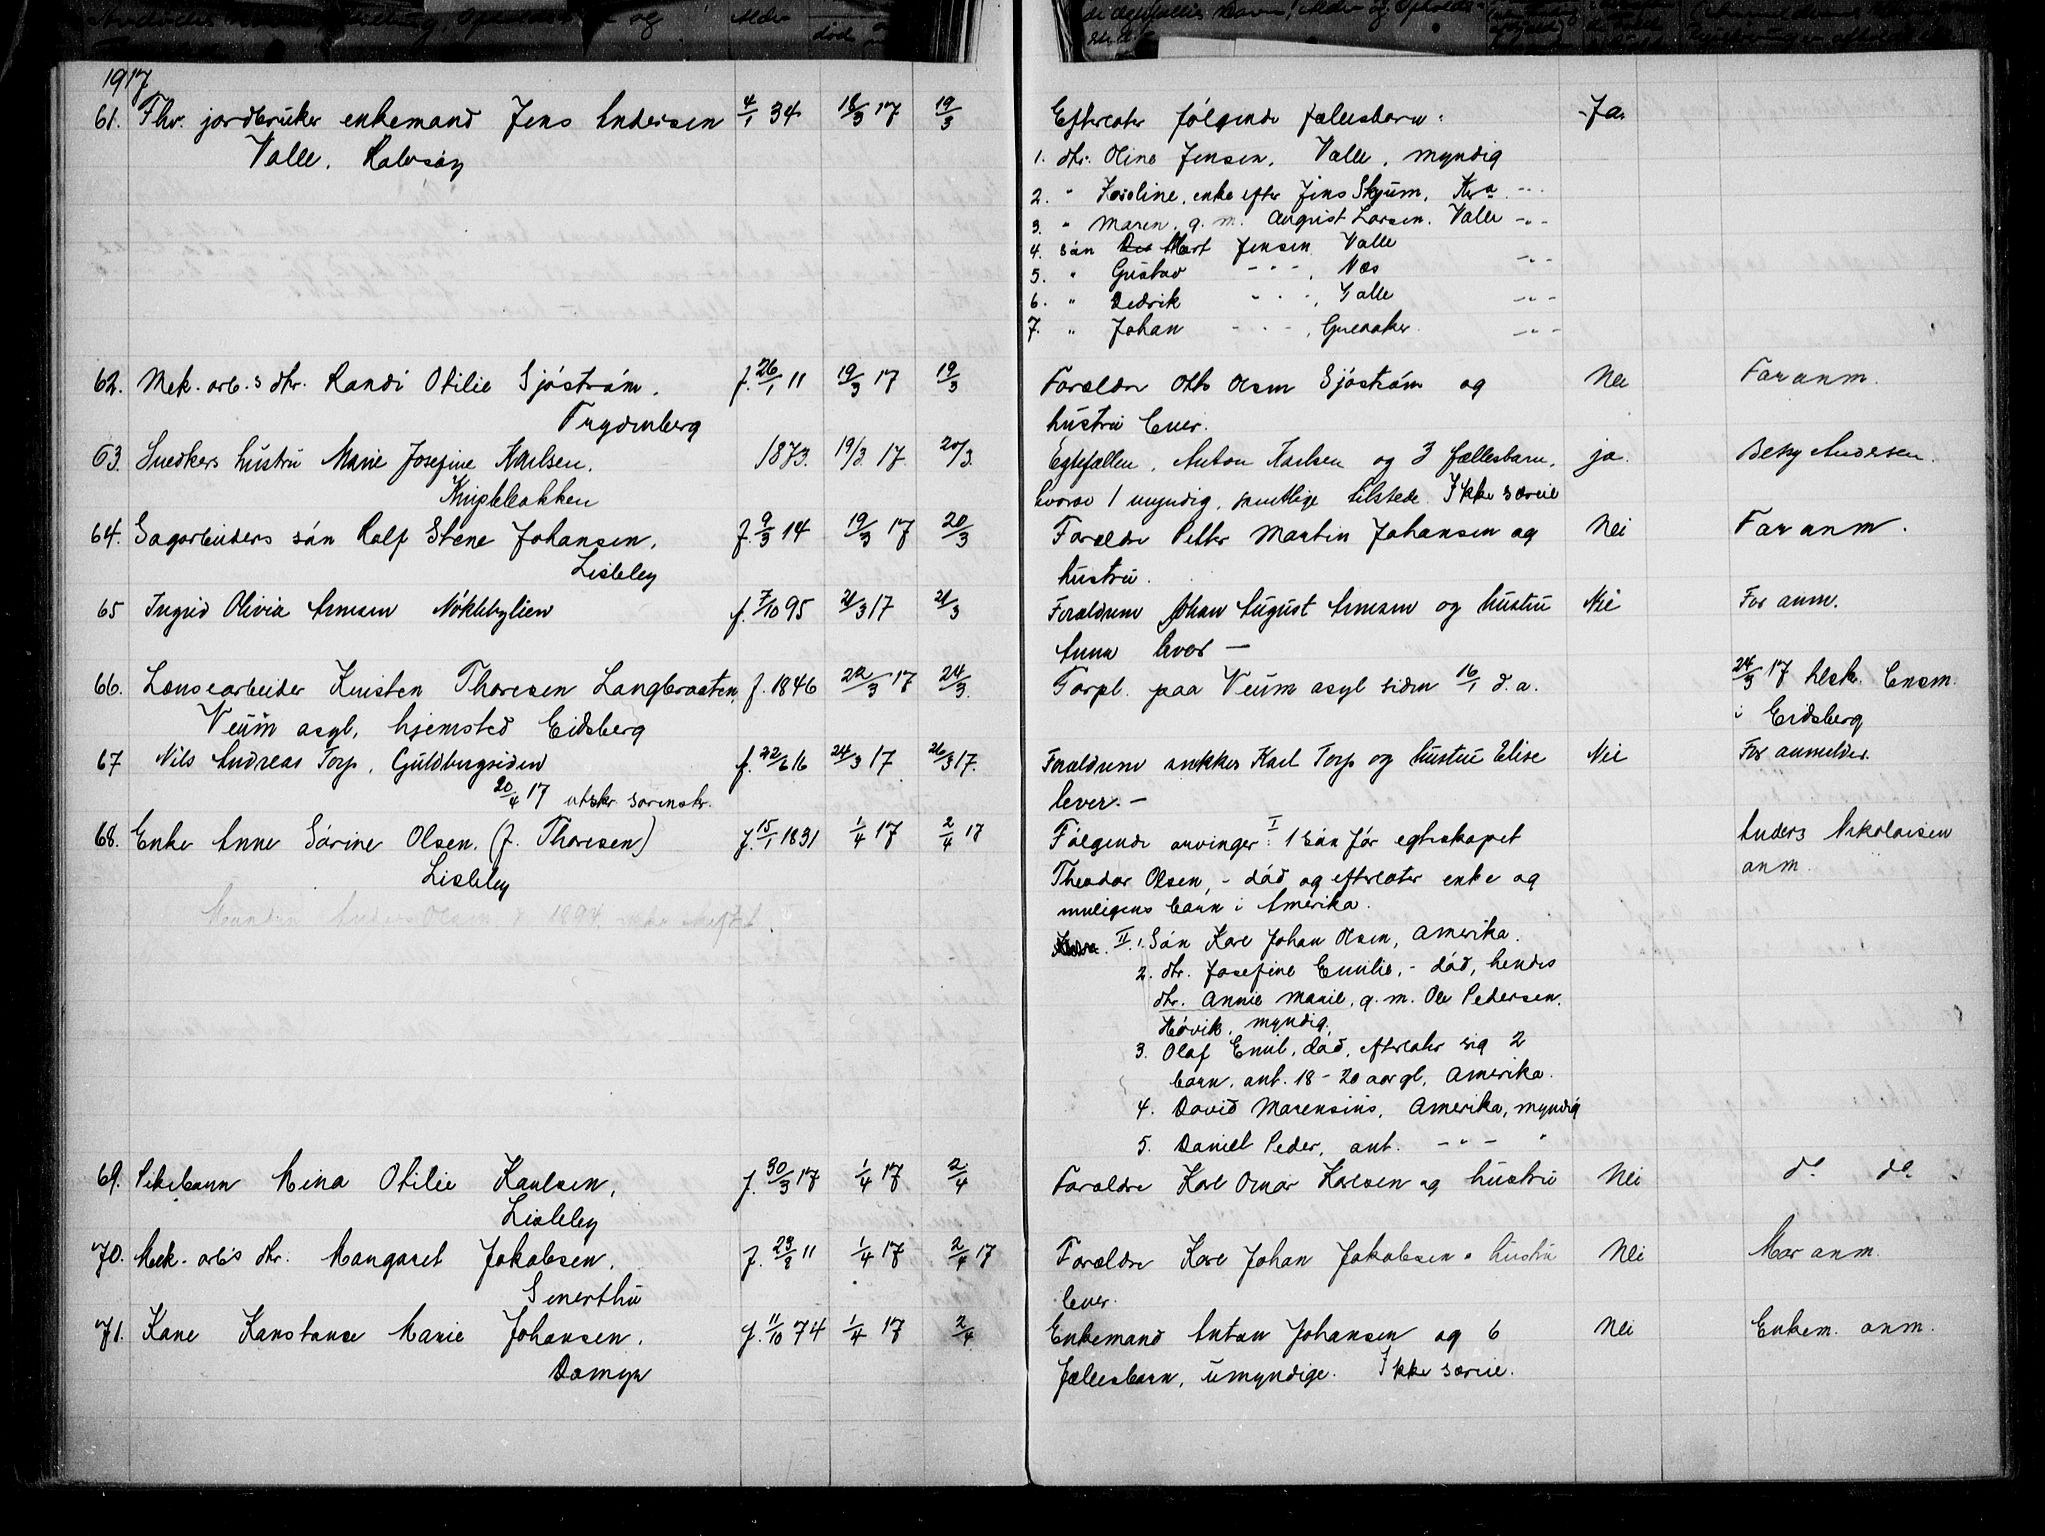 1917
61. Fhv. jordbruker enkemand Jens Andersen 4/1 34 18/3 17 19/3 Efterlater følgende fællesbarn: Ja
Valle, Rolvsøy
1. dtr. Oline Jensen, Valle, myndig
2. " Karoline, enke efter Jens Skjum, Kra - " -
3. " Maren, g. m. August Larsen, Valle - " -
4. søn Mart Jensen Valle
5. " Gustav - " - , Næs - " -
6. " Dedrik - " - , Valle - " -
7. " Johan - " - , Greaaker - " -
62. Mek. arb.s dtr. Randi Otilie Sjøstrøm, f. 26/1 11 19/3 17 19/3 Forældre Otto Olsen Sjøstrøm og Nei Far anm.
Trydenberg hustru lever.
63. Snedkers hustru Marie Josefine Karlsen, 1873. 19/3 17 20/3 Egtefællen, Anton Karlsen og 3 fællesbarn, ja. Betsy Andersen.
Kniplebakken hvorav 1 myndig, samtlige tilstede. Ikke særeie
64. Sagarbeiders søn Rolf Stene Johansen, f. 9/3 14 19/3 17 20/3 Forældre Petter Martin Johansen og Nei Far anm.
Lisleby hustru.
65 Ingrid Olivia Arnesen Nøklebylien f. 7/10 95 21/3 17 21/3 Forældrene Johan August Arnesen og hustru Nei Far anm.
Anna lever —
66. Lensearbeider Kristen Thoresen Langbraaten, f. 1846 22/3 17 24/3. Forpl. paa Veum asyl siden 16/1 d. a. 24/3 17 tilskr. Lensm.
Veum asyl, hjemsted Eidsberg i Eidsberg
67 Nils Andreas Torp, Guldbergsiden f. 22/6 16 24/3 17 26/3 17. Forældrene snekker Karl Torp og hustru Elise Nei Far anmelder.
20/4 17 utskr. sorenskr. lever. —
68. Enke Anne Sørine Olsen, (f. Thoresen) f. 15/1 1831 1/4 17 2/4 17 Følgende arvinger: I 1 søn før egteskapet Anders Nikolaisen
Lisleby Theodor Olsen, - død og efterlater enke og anm.
muligens barn i Amerika.
Anders Olsen d. 1894,
II. 1. Søn Karl Johan Olsen, Amerika.
2. dtr. Josefine Emilie, - død, hendes
dtr. Annie Marie, g. m. Ole Pedersen,
Høvik, myndig.
3. Olaf Emil, død, efterlater sig 2
barn, ant. 18 - 20 aar gl, Amerika.
4. David Marensius, Amerika, myndig
5. Daniel Peder, ant. - " - "
69. Pikebarn Mina Otilie Karlsen, f. 30/3 17 1/4 17 2/4 Forældre Karl Omar Karlsen og hustru Nei do do
Lisleby
70. Mek. arb's dtr. Margaret Jakobsen, f. 23/8 11 1/4 17 2/4 17 Forældre Karl Johan Jakobsen " hustru Nei Mor anm.
Smerthu lever.
71. Kone Konstanse Marie Johansen, f. 11/10 74 1/4 17 2/4 Enkemand Anton Johansen og 6 Nei Enkem. anm.
Damyr fællesbarn, umyndige. Ikke særeie.